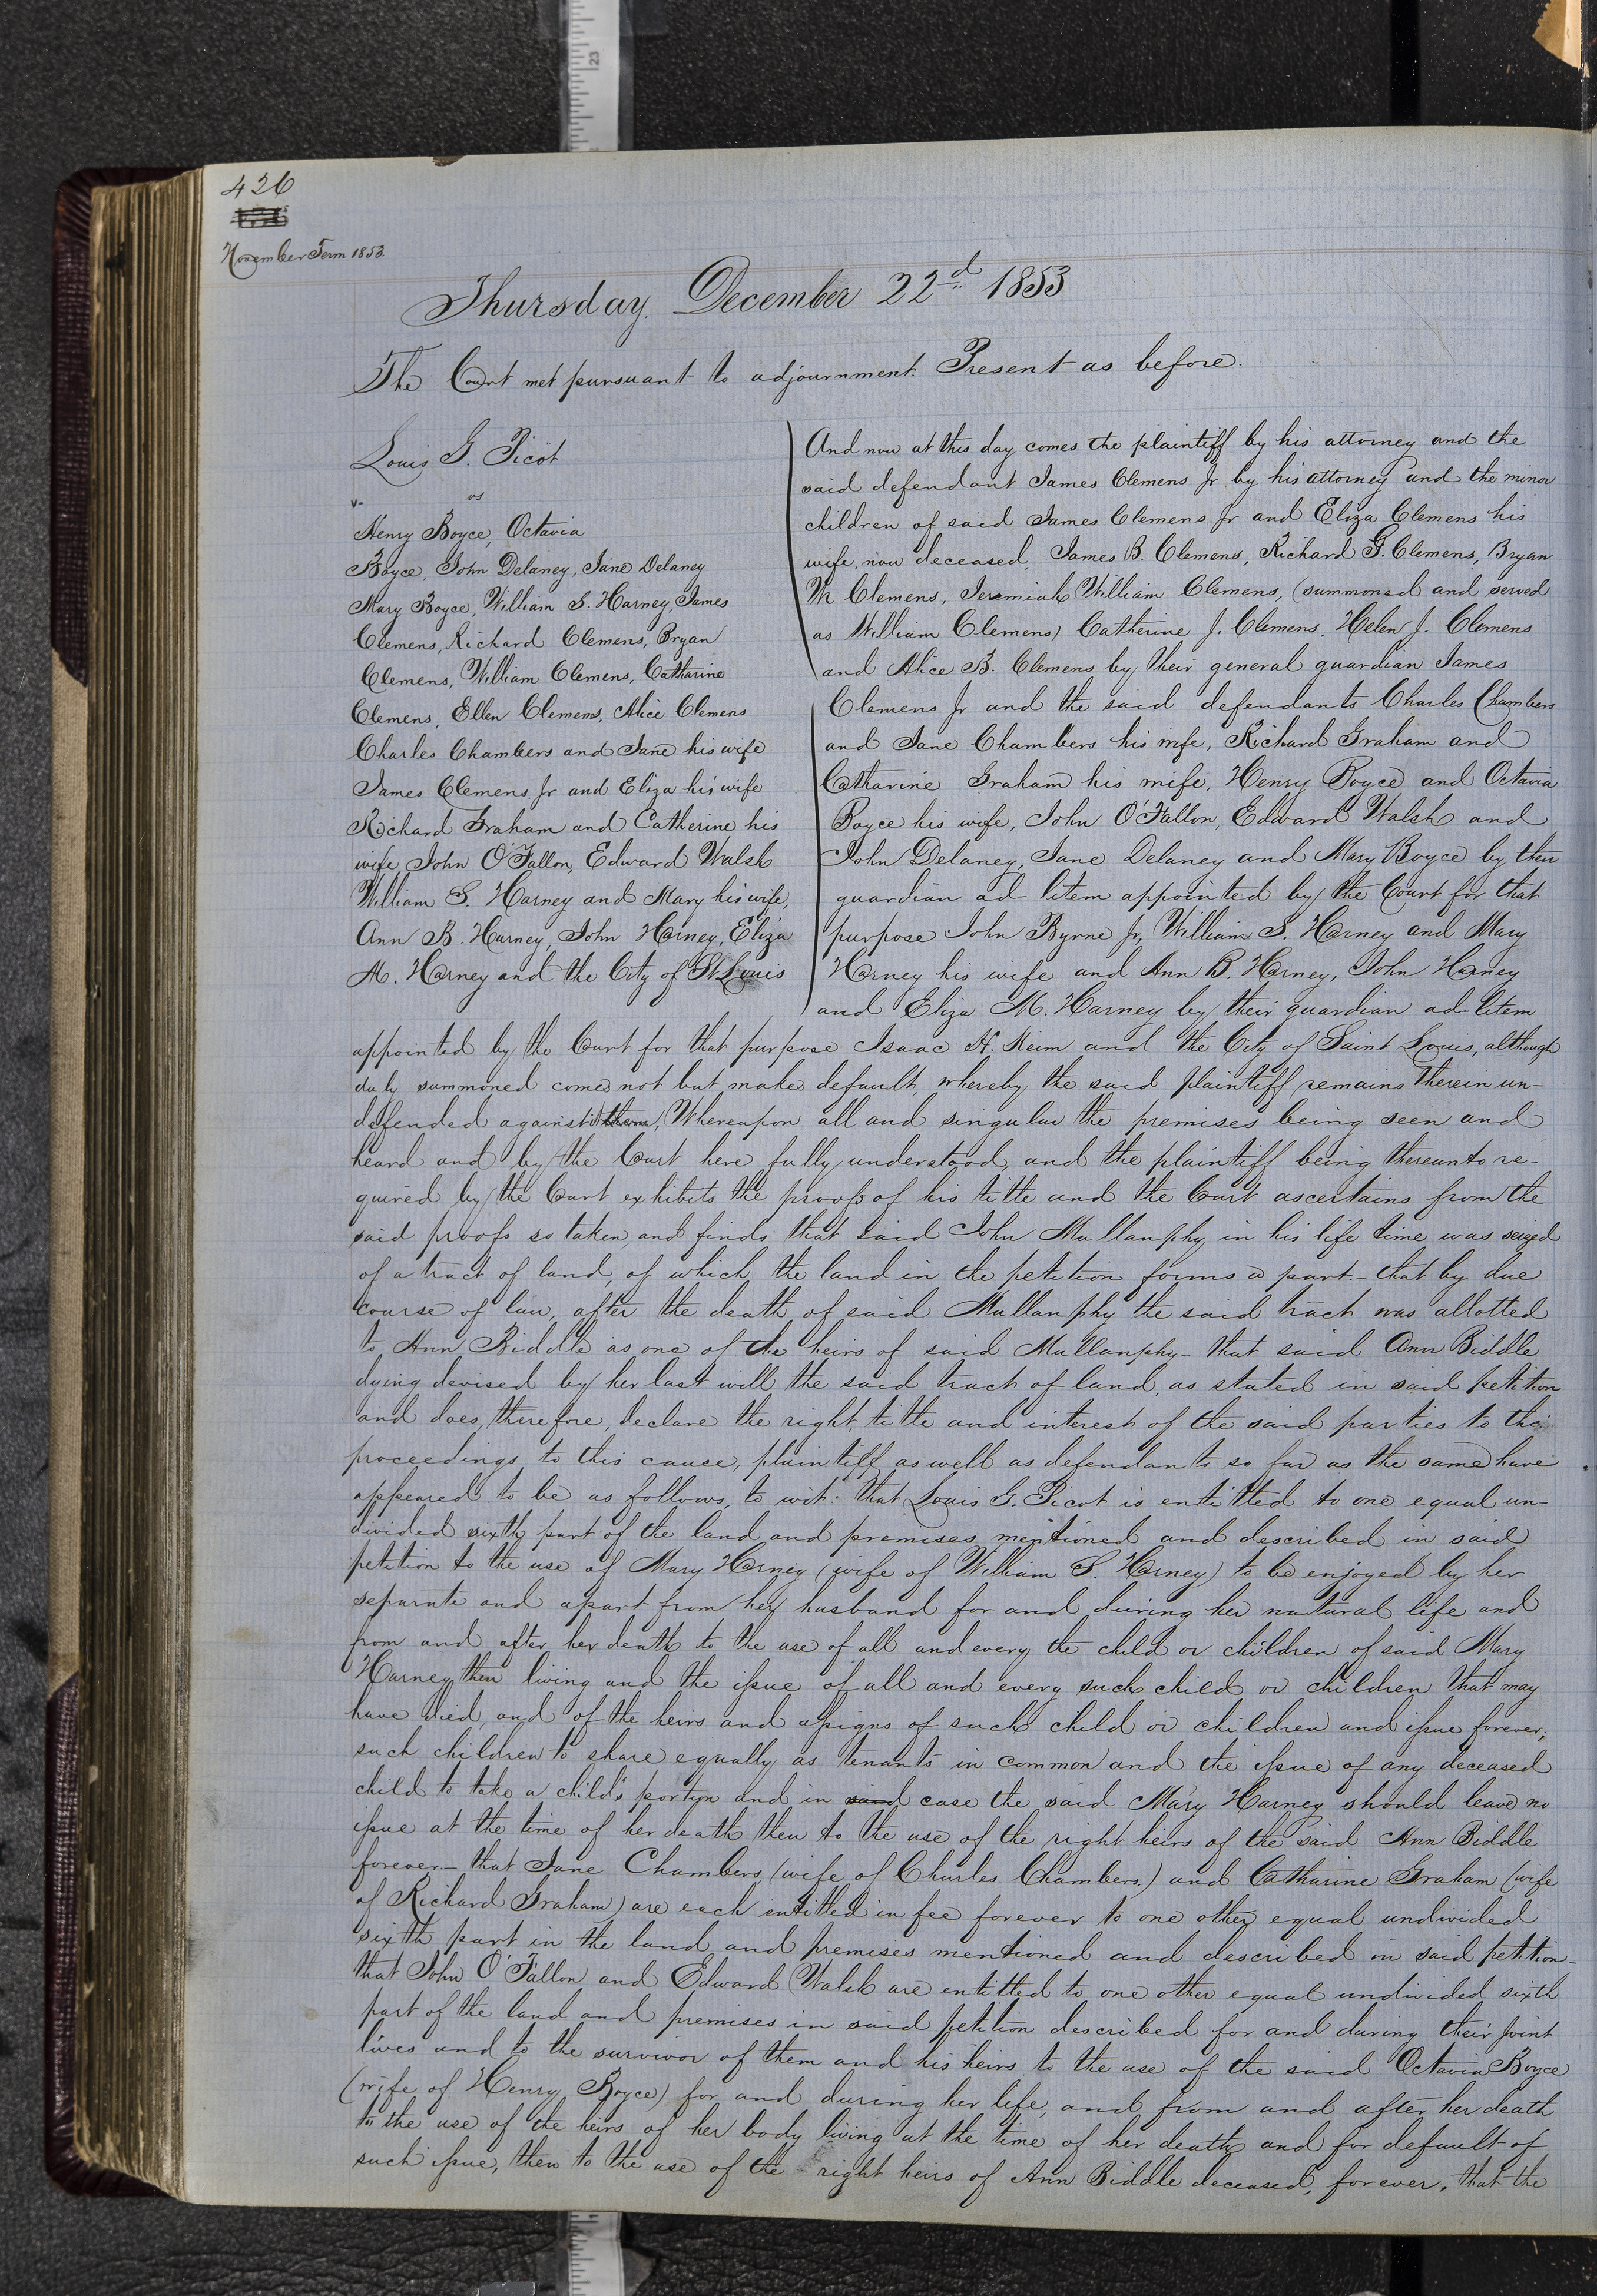 426
November Term 1853.
Thursday, December 22d 1853
The Court met pursuant to adjournment. Present as before.
Louis G. Picot
vs
Henry Boyce, Octavia
Boyce, John Delaney, Jane Delaney
Mary Boyce, William S. Harney, James
Clemens, Richard Clemens, Bryan
Clemens, William Clemens, Catharine
Clemens, Ellen Clemens, Alice Clemens
Charles Chambers and Jane his wife
James Clemens Jr and Eliza his wife
Richard Graham and Catherine his
wife, John O'Fallon, Edward Walsh
William S. Harney and Mary his wife,
Ann B. Harney, John Harney, Eliza
M. Harney and the City of St. Louis
And now at this day comes the plaintiff by his attorney and the
said defendant James Clemens Jr by his attorney and the minor
children of said James Clemens Jr and Eliza Clemens his
wife, now deceased, James B. Clemens, Richard G. Clemens, Bryan
M Clemens, Jeremiah William Clemens, (summoned and served
as William Clemens) Catherine J. Clemens, Helen J. Clemens
and Alice B. Clemens by their general guardian James
Clemens Jr and the said defendants Charles Chambers
and Jane Chambers his wife, Richard Graham and
Catharine Graham his wife, Henry Boyce and Octavia
Boyce his wife, John O'Fallon, Edward Walsh and
John Delaney, Jane Delaney and Mary Boyce by their
guardian ad litem appointed by the Court for that
purpose John Byrne Jr, William S. Harney and Mary
Harney his wife and Ann B. Harney, John Harney
and Eliza M. Harney by their guardian ad litem
appointed by the Court for that purpose Isaac H. Keim and the City of Saint Louis, although
duly summoned comes not but makes default, whereby the said plaintiff remains therein un-
defended against them, Whereupon all and singular the premises being seen and
heard and by the Court here fully understood, and the plaintiff being thereunto re-
quired by the Court exhibits the proofs of his title and the Court ascertains from the
said proofs so taken, and finds that said John Mullanphy in his life time was seized
of a tract of land, of which the land in the petition forms a part - that by due
course of law, after the death of said Mullanphy the said tract was allotted
to Ann Biddle as one of the heirs of said Mullanphy - that said Ann Biddle
dying devised by her last will the said tract of land, as stated in said petition
and does, therefore, declare the right, title and interest of the said parties to the
proceedings to this cause, plaintiff as well as defendants so far as the same have
appeared to be as follows, to wit: that Louis G. Picot is entitled to one equal un-
divided sixth part of the land and premises mentioned and described in said
petition to the use of Mary Harney (wife of William S. Harney) to be enjoyed by her
separate and apart from her husband for and during her natural life and
from and after her death to the use of all and every the child or children of said Mary
Harney then living and the issue of all and every such child or children that may
have died, and of the heirs and assigns of such child or children and issue forever;
such children to share equally as tenants in common and the issue of any deceased
child to take a child's portion and in said case the said Mary Harney should leave no
issue at the time of her death then to the use of the right heirs of the said Ann Biddle
forever - that Jane Chambers (wife of Charles Chambers.) and Catharine Graham (wife
of Richard Graham) are each entitled in fee forever to one other equal undivided
sixth part in the land and premises mentioned and described in said petition -
that John O'Fallon and Edward Walsh are entitled to one other equal undivided sixth
part of the land and premises in said petition described for and during their joint
lives and to the survivor of them and his heirs to the use of the said Octavia Boyce
(wife of Henry Boyce) for and during her life, and from and after her death
to the use of the heirs of her body living at the time of her death and for default of
such issue, then to the use of the right heirs of Ann Biddle deceased, forever. that the